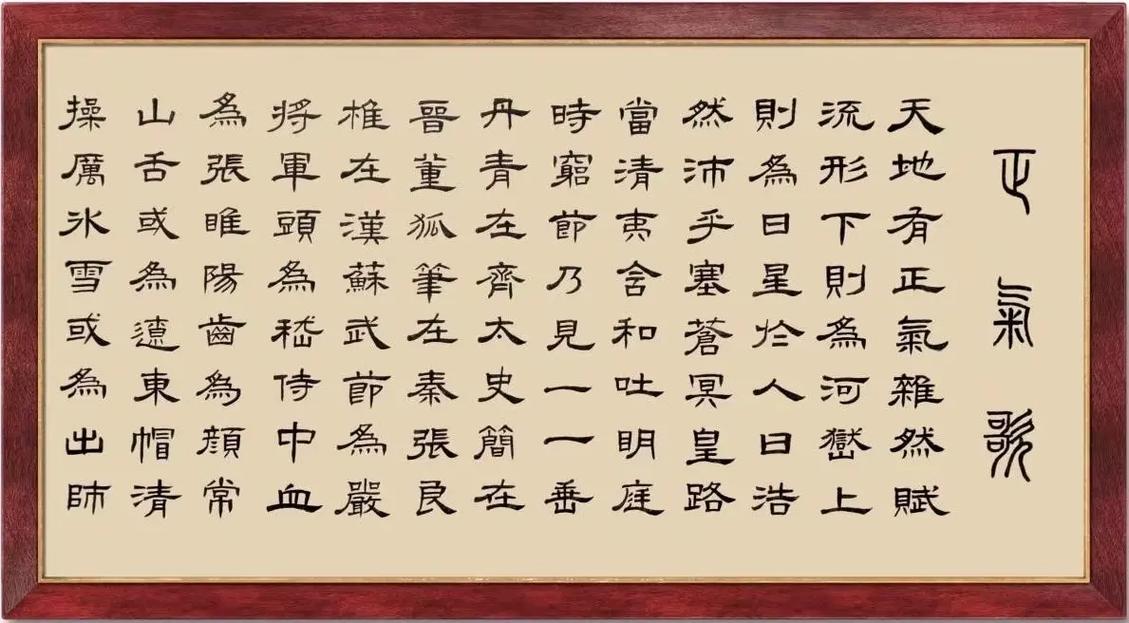 正氣歌
天地有正氣雜然賦
流形下則為河嶽上
則為日星於人曰浩
然沛乎塞蒼冥皇路
當清夷含和吐明庭
時窮節乃見一一垂
丹青在齊太史簡在
晉董狐筆在秦張良
椎在漢蘇武節為嚴
將軍頭為嵇侍中血
為張睢陽齒為顏常
山舌或為遼東帽清
操厲冰雪或為出師